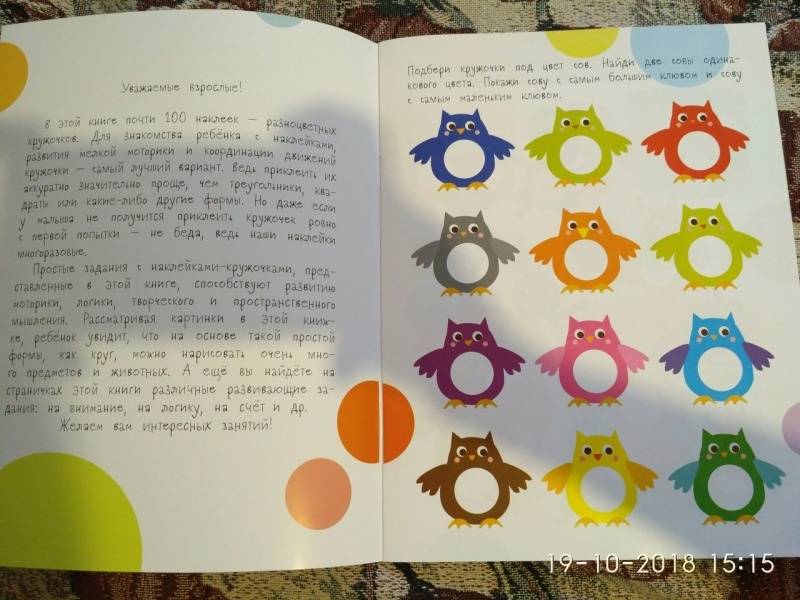 Уважаемые взрослые!
В этой книге почти 100 наклеек — разноцветных
кружочков. Для знакомства ребёнка с наклейками,
развития мелкой моторики и координации движений
кружочки — самый лучший вариант. Ведь приклеить их
аккуратно значительно проще, чем треугольники, ква-
драты или какие-либо другие формы. Но даже если
у малыша не получится приклеить кружочек ровно
с первой попытки — не беда, ведь наши наклейки
многоразовые.
Простые задания с наклейками-кружочками, пред-
ставленные в этой книге, способствуют развитию
моторики, логики, творческого и пространственного
мышления. Рассматривая картинки в этой книж-
ке, ребёнок увидит, что на основе такой простой
формы, как круг, можно нарисовать очень мно-
го предметов и животных. А ещё вы найдёте на
страничках этой книги различные развивающие за-
дания: на внимание, на логику, на счёт и др.
Желаем вам интересных занятий!
Подбери кружочки под цвет сов. Найди две совы одина-
кового цвета. Покажи сову с самым большим клювом и сову
с самым маленьким клювом.
19-10-2018 15:15